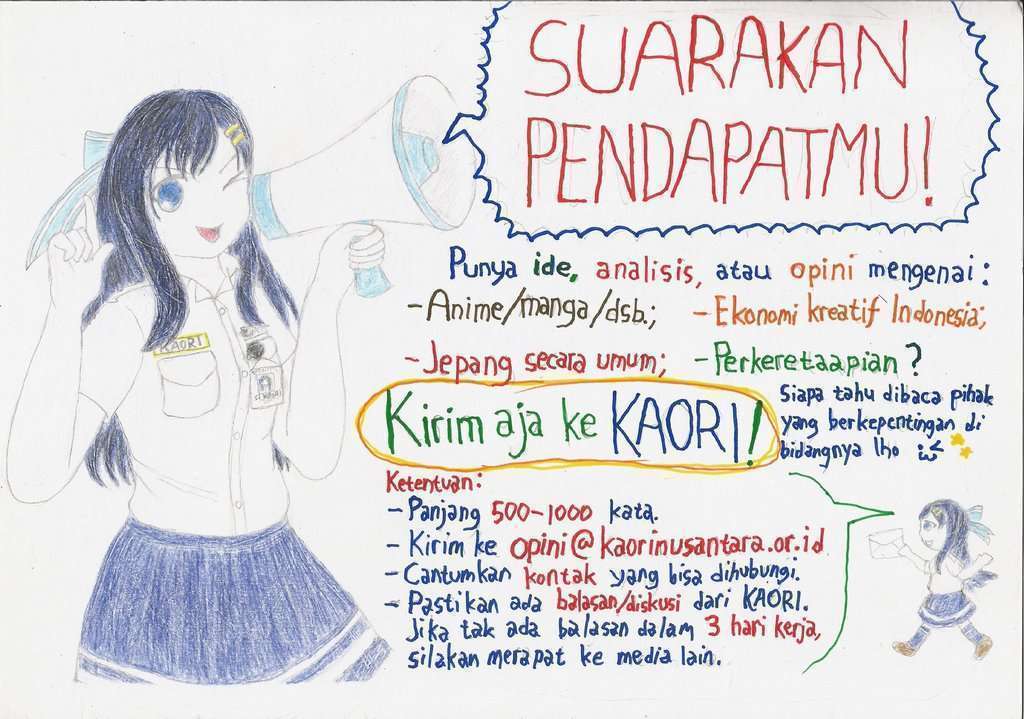 SUARAKAN
PENDAPATMU!
Punya ide, analisis, atau opini mengenai:
- Anime/manga/dsb.; - Ekonomi kreatif Indonesia;
- Jepang secara umum; - Perkeretaapian?
Kirim aja ke KAORI!
Siapa tahu dibaca pihak
yang berkepentingan di
bidangnya lho
Ketentuan:
- Panjang 500-1000 kata.
- Kirim ke opini@kaorinusantara.or.id
- Cantumkan kontak yang bisa dihubungi.
- Pastikan ada balasan/diskusi dari KAORI.
Jika tak ada balasan dalam 3 hari kerja,
silakan merapat ke media lain.
KAORI